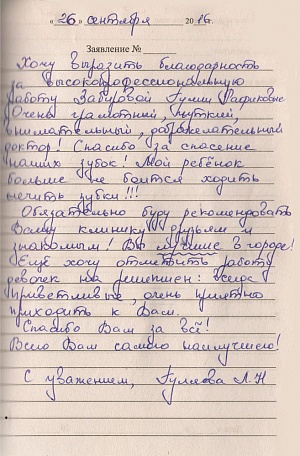 « 26 » сентября 2016г.
Заявление №
Хочу выразить благодарность
за высокопрофессиональную
работу Забуровой Гулии Рафиковне
Очень грамотный, чуткий,
внимательный, доброжелательный
доктор! Спасибо за спасение
наших зубок! Мой ребёнок
больше не боится ходить
лечить зубки!!!
Обязательно буду рекомендовать
Вашу клинику друзьям и
знакомым! Вы лучшие в городе!
Ещё хочу отметить работу
девочек на решепшен: всегда
приветливые, очень приятно
приходить к Вам.
Спасибо Вам за всё!
Всего Вам самого наилучшего!
С уважением, Гуляева Л.Н